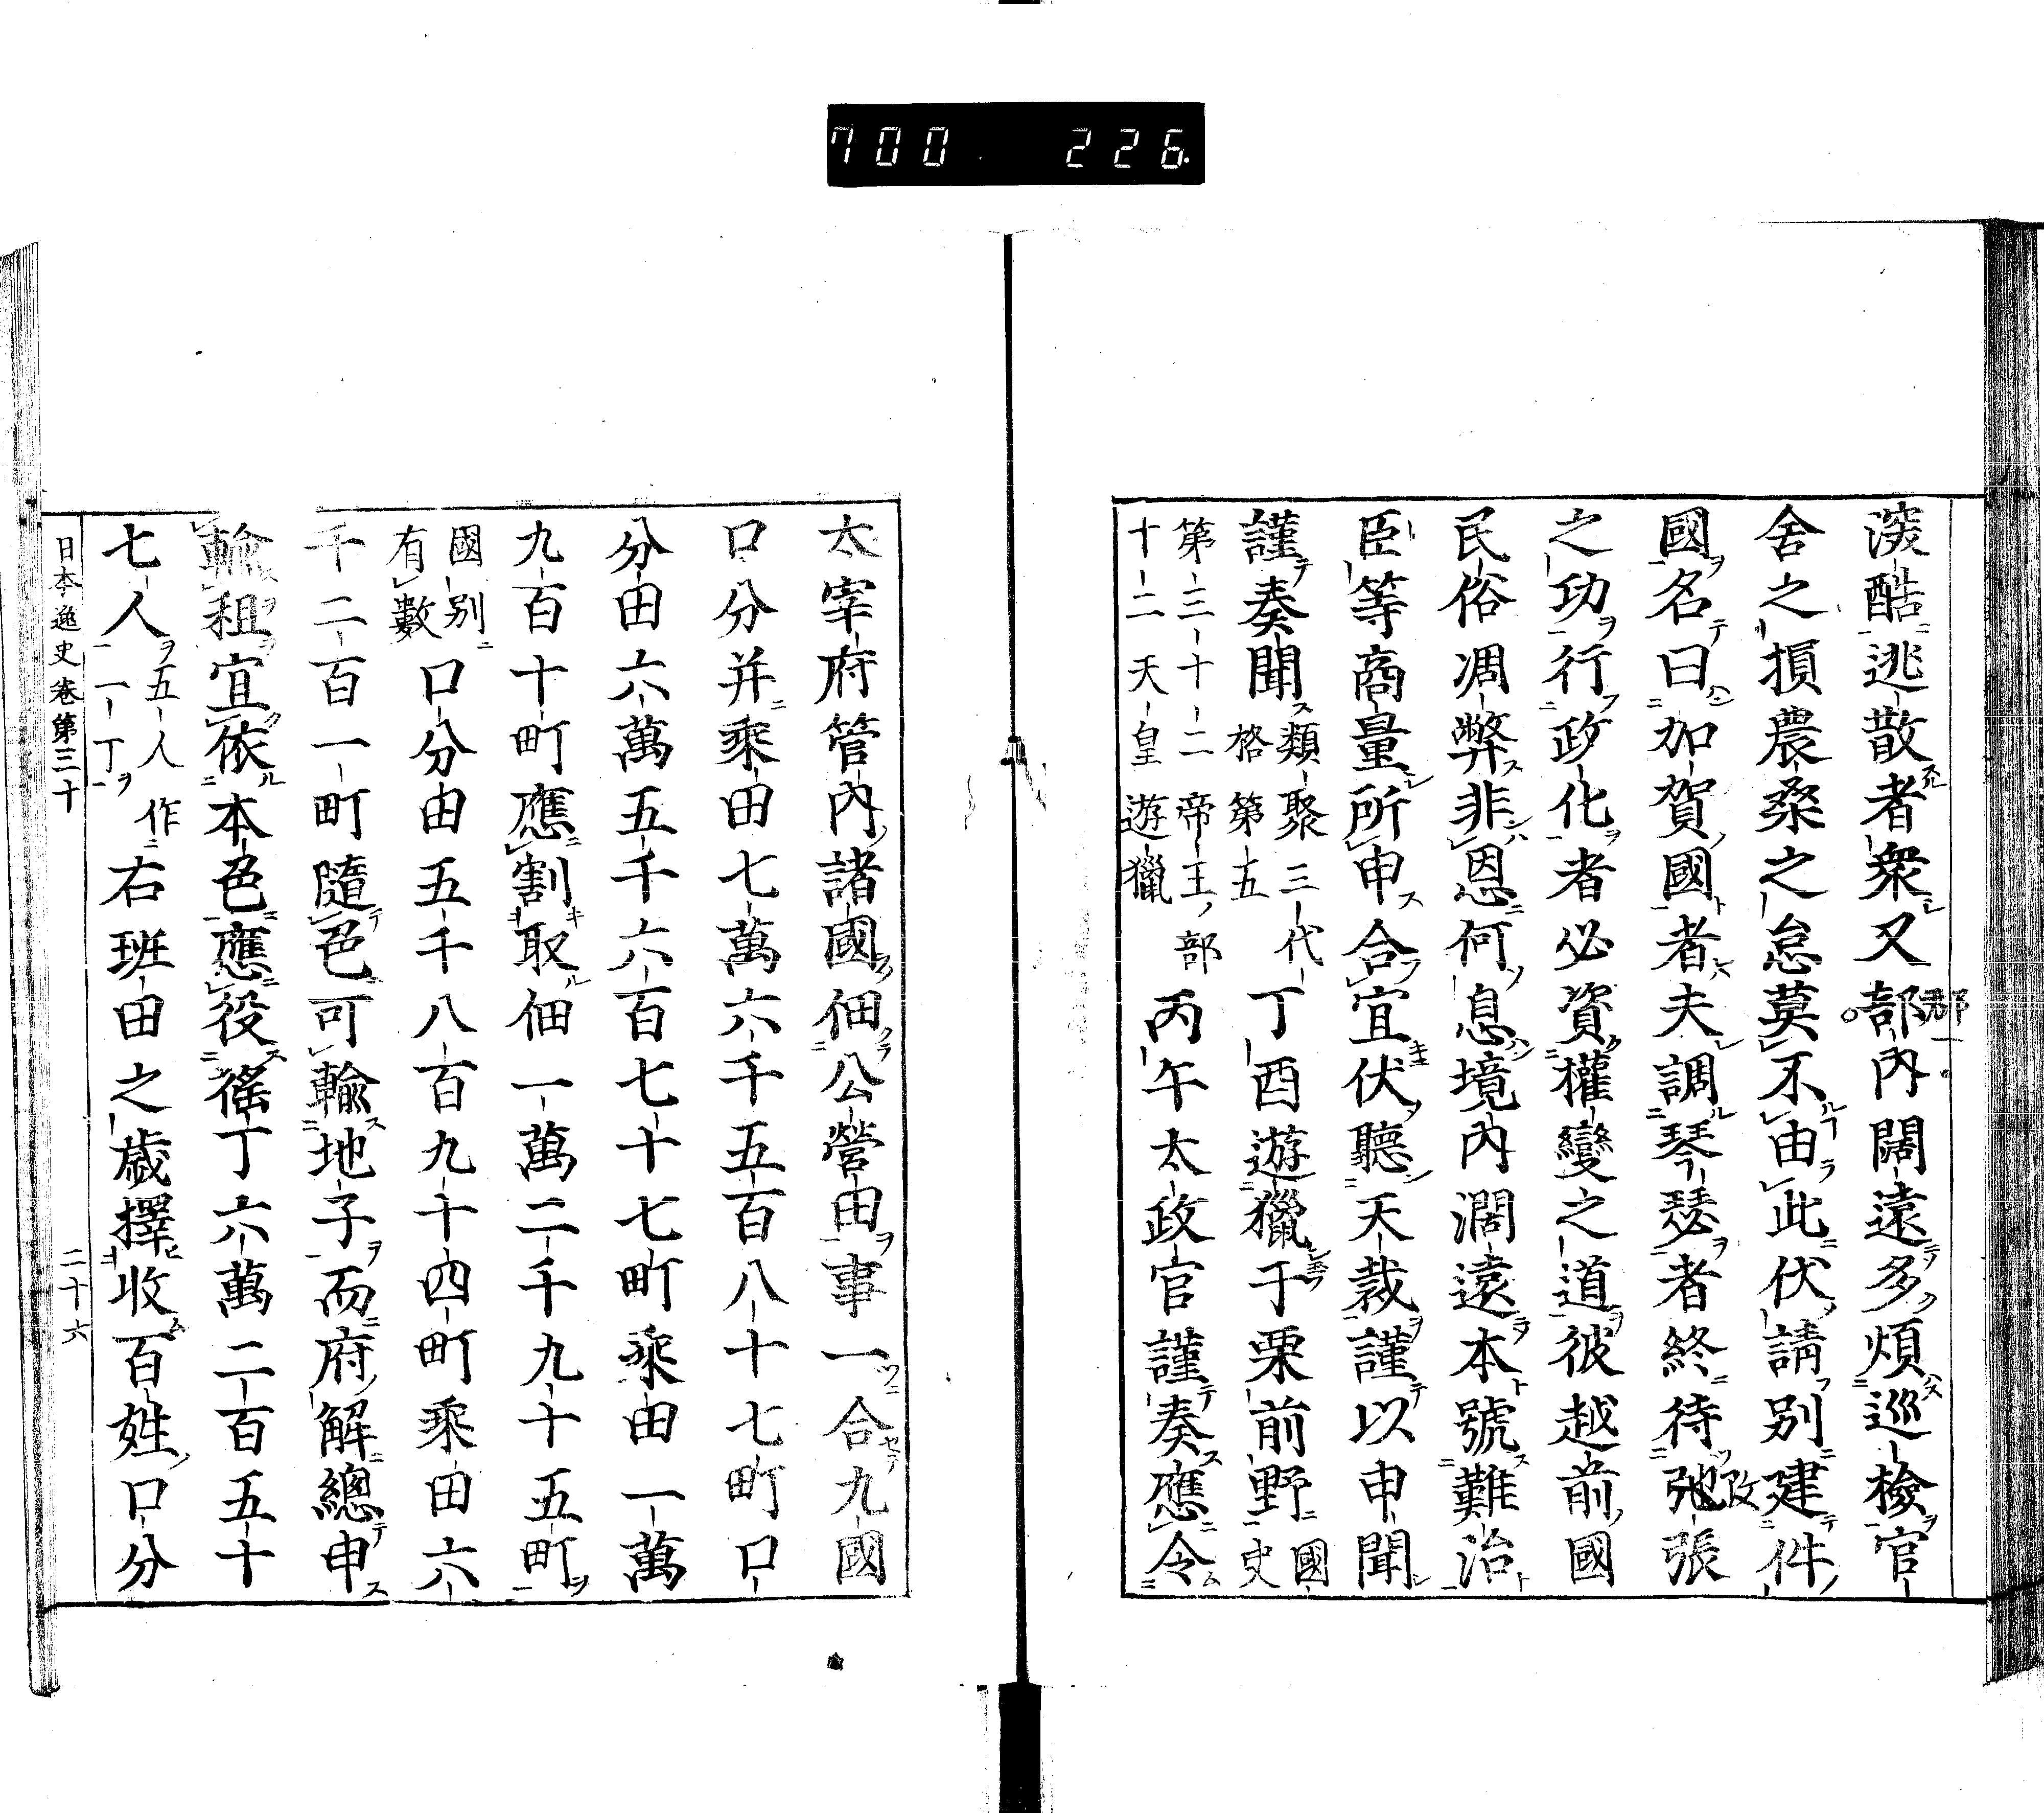 700 226
深酷逃散者衆又部内闊遠多煩巡檢官
郡
舍之損農桑之怠莫不由此伏請別建件
國名曰加賀國者夫調琴瑟者終待弛張
改
之功行政化者必資權變之道彼越前國
民俗凋弊非恩何息境内濶遠本號難治
臣等商量所申合宜伏聽天裁謹以申聞
謹奏聞類聚三代格第五丁酉遊獵于栗前野國史
第三十二帝王部十二天皇遊獵丙午太政官謹奏應令
太宰府管内諸國佃公營田事一合九國
口分并乘田七萬六千五百八十七町口
分田六萬五千六百七十七町乘田一萬
九百十町應割取佃一萬二千九十五町
國別有數口分田五千八百九十四町乘田六
千二百一町隨色可輸地子而府解總申
輸租宜依本色應役徭丁六萬二百五十
七人五人作一丁右班田之歳擇收百姓口分
日本逸史卷第三十 二十六